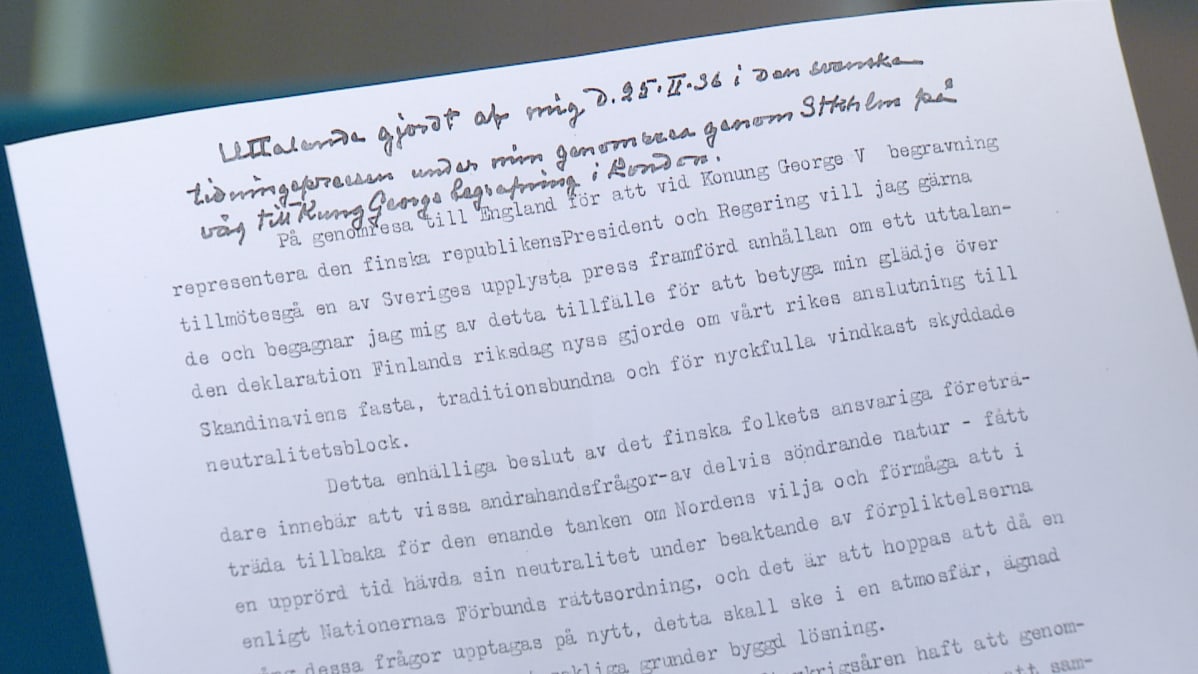 Uttalande gjordt af mig d. 25.II.36 i den svenska
tidningspressen under min genomresa genom Sthlm på
väg till Kung Georgs begrafning i London.
På genomresa till England för att vid Konung George V begravning
representera den finska republikensPresident och Regering vill jag gärna
tillmötesgå en av Sveriges upplysta press framförd anhållan om ett uttalan-
de och begagnar jag mig av detta tillfälle för att betyga min glädje över
den deklaration Finlands riksdag nyss gjorde om vårt rikes anslutning till
Skandinaviens fasta, traditionsbundna och för nyckfulla vindkast skyddade
neutralitetsblock.
Detta enhälliga beslut av det finska folkets ansvariga företrä-
dare innebär att vissa andrahandsfrågor-av delvis söndrande natur - fått
träda tillbaka för den enande tanken om Nordens vilja och förmåga att i
en upprörd tid hävda sin neutralitet under beaktande av förpliktelserna
enligt Nationernas Förbunds rättsordning, och det är att hoppas att då en
dessa frågor upptagas på nytt, detta skall ske i en atmosfär, ägnad
grunder byggd lösning.
haft att genom-